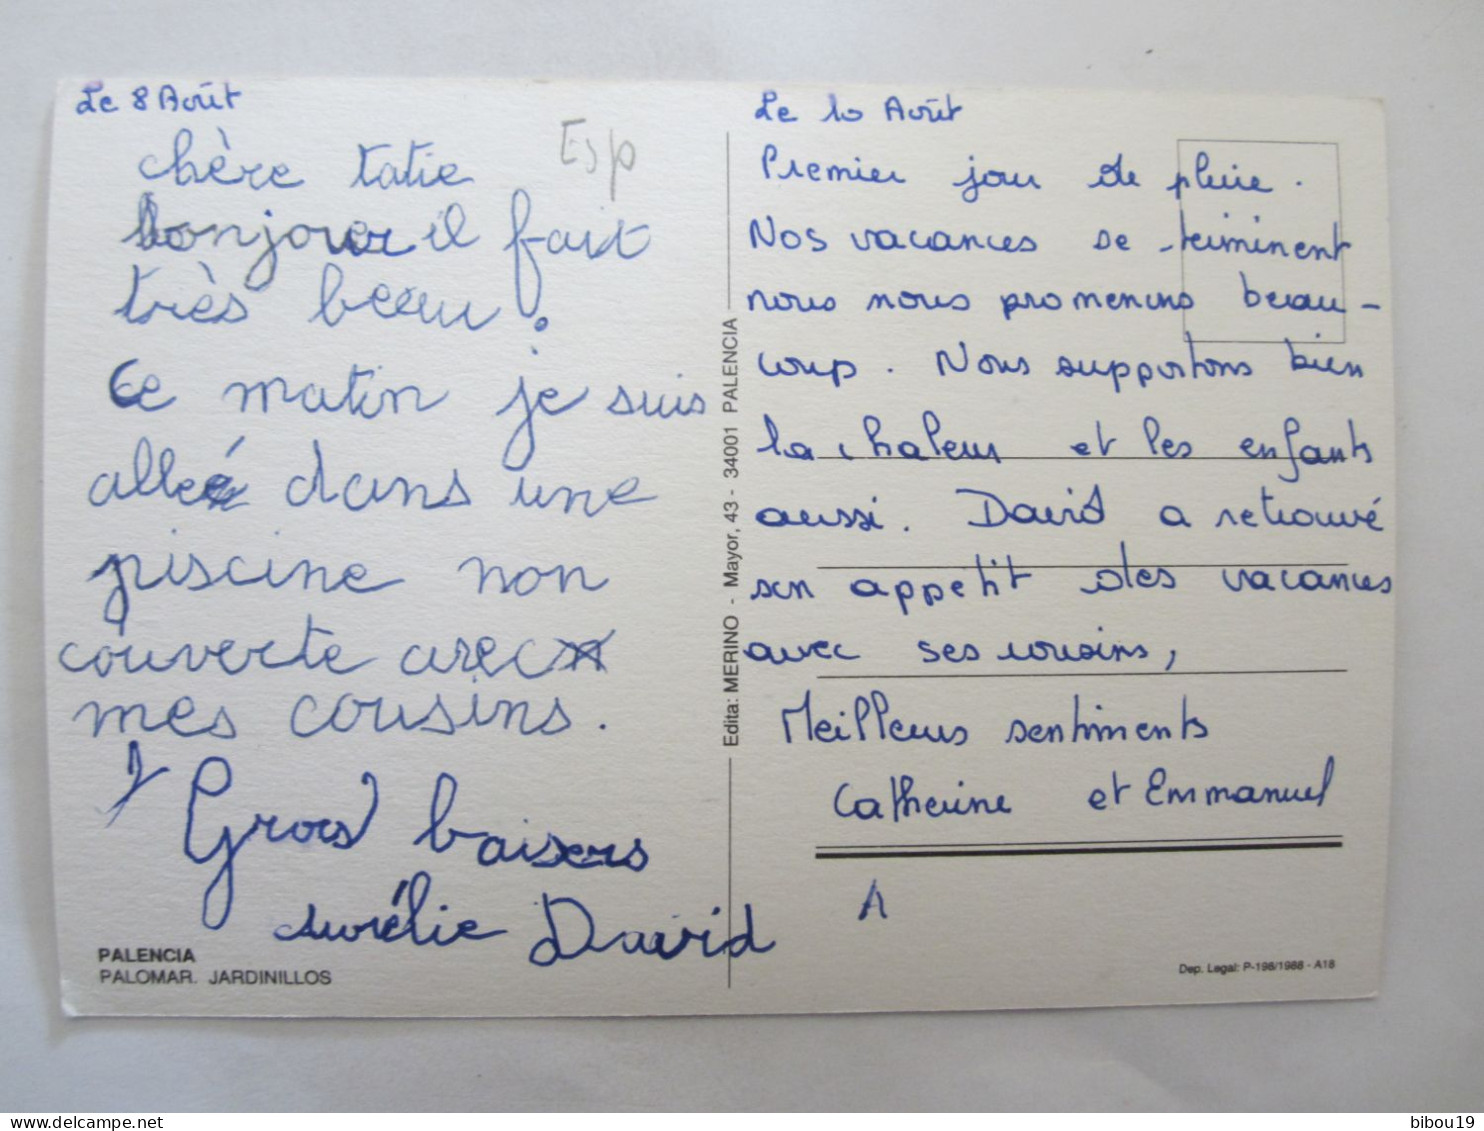 Le 8 Août
Esp
chère tatie
bonjour il fait
très beau.
Ce matin je suis
allée dans une
piscine non
couverte avec
mes cousins.
Gros baisers
Aurélie David
PALENCIA
PALOMAR. JARDINILLOS
Edita: MERINO - Mayor, 43 - 34001 PALENCIA
Le 10 Août
Premier jour de pluie.
Nos vacances se terminent
nous nous promenons beau-
coup. Nous supportons bien
la chaleur et les enfants
aussi. David a retrouvé
son appetit des vacances
avec ses cousins,
Meilleurs sentiments
Catherine et Emmanuel
A
Dep. Legal: P-198/1988 - A18
delcampe.net
bibou19